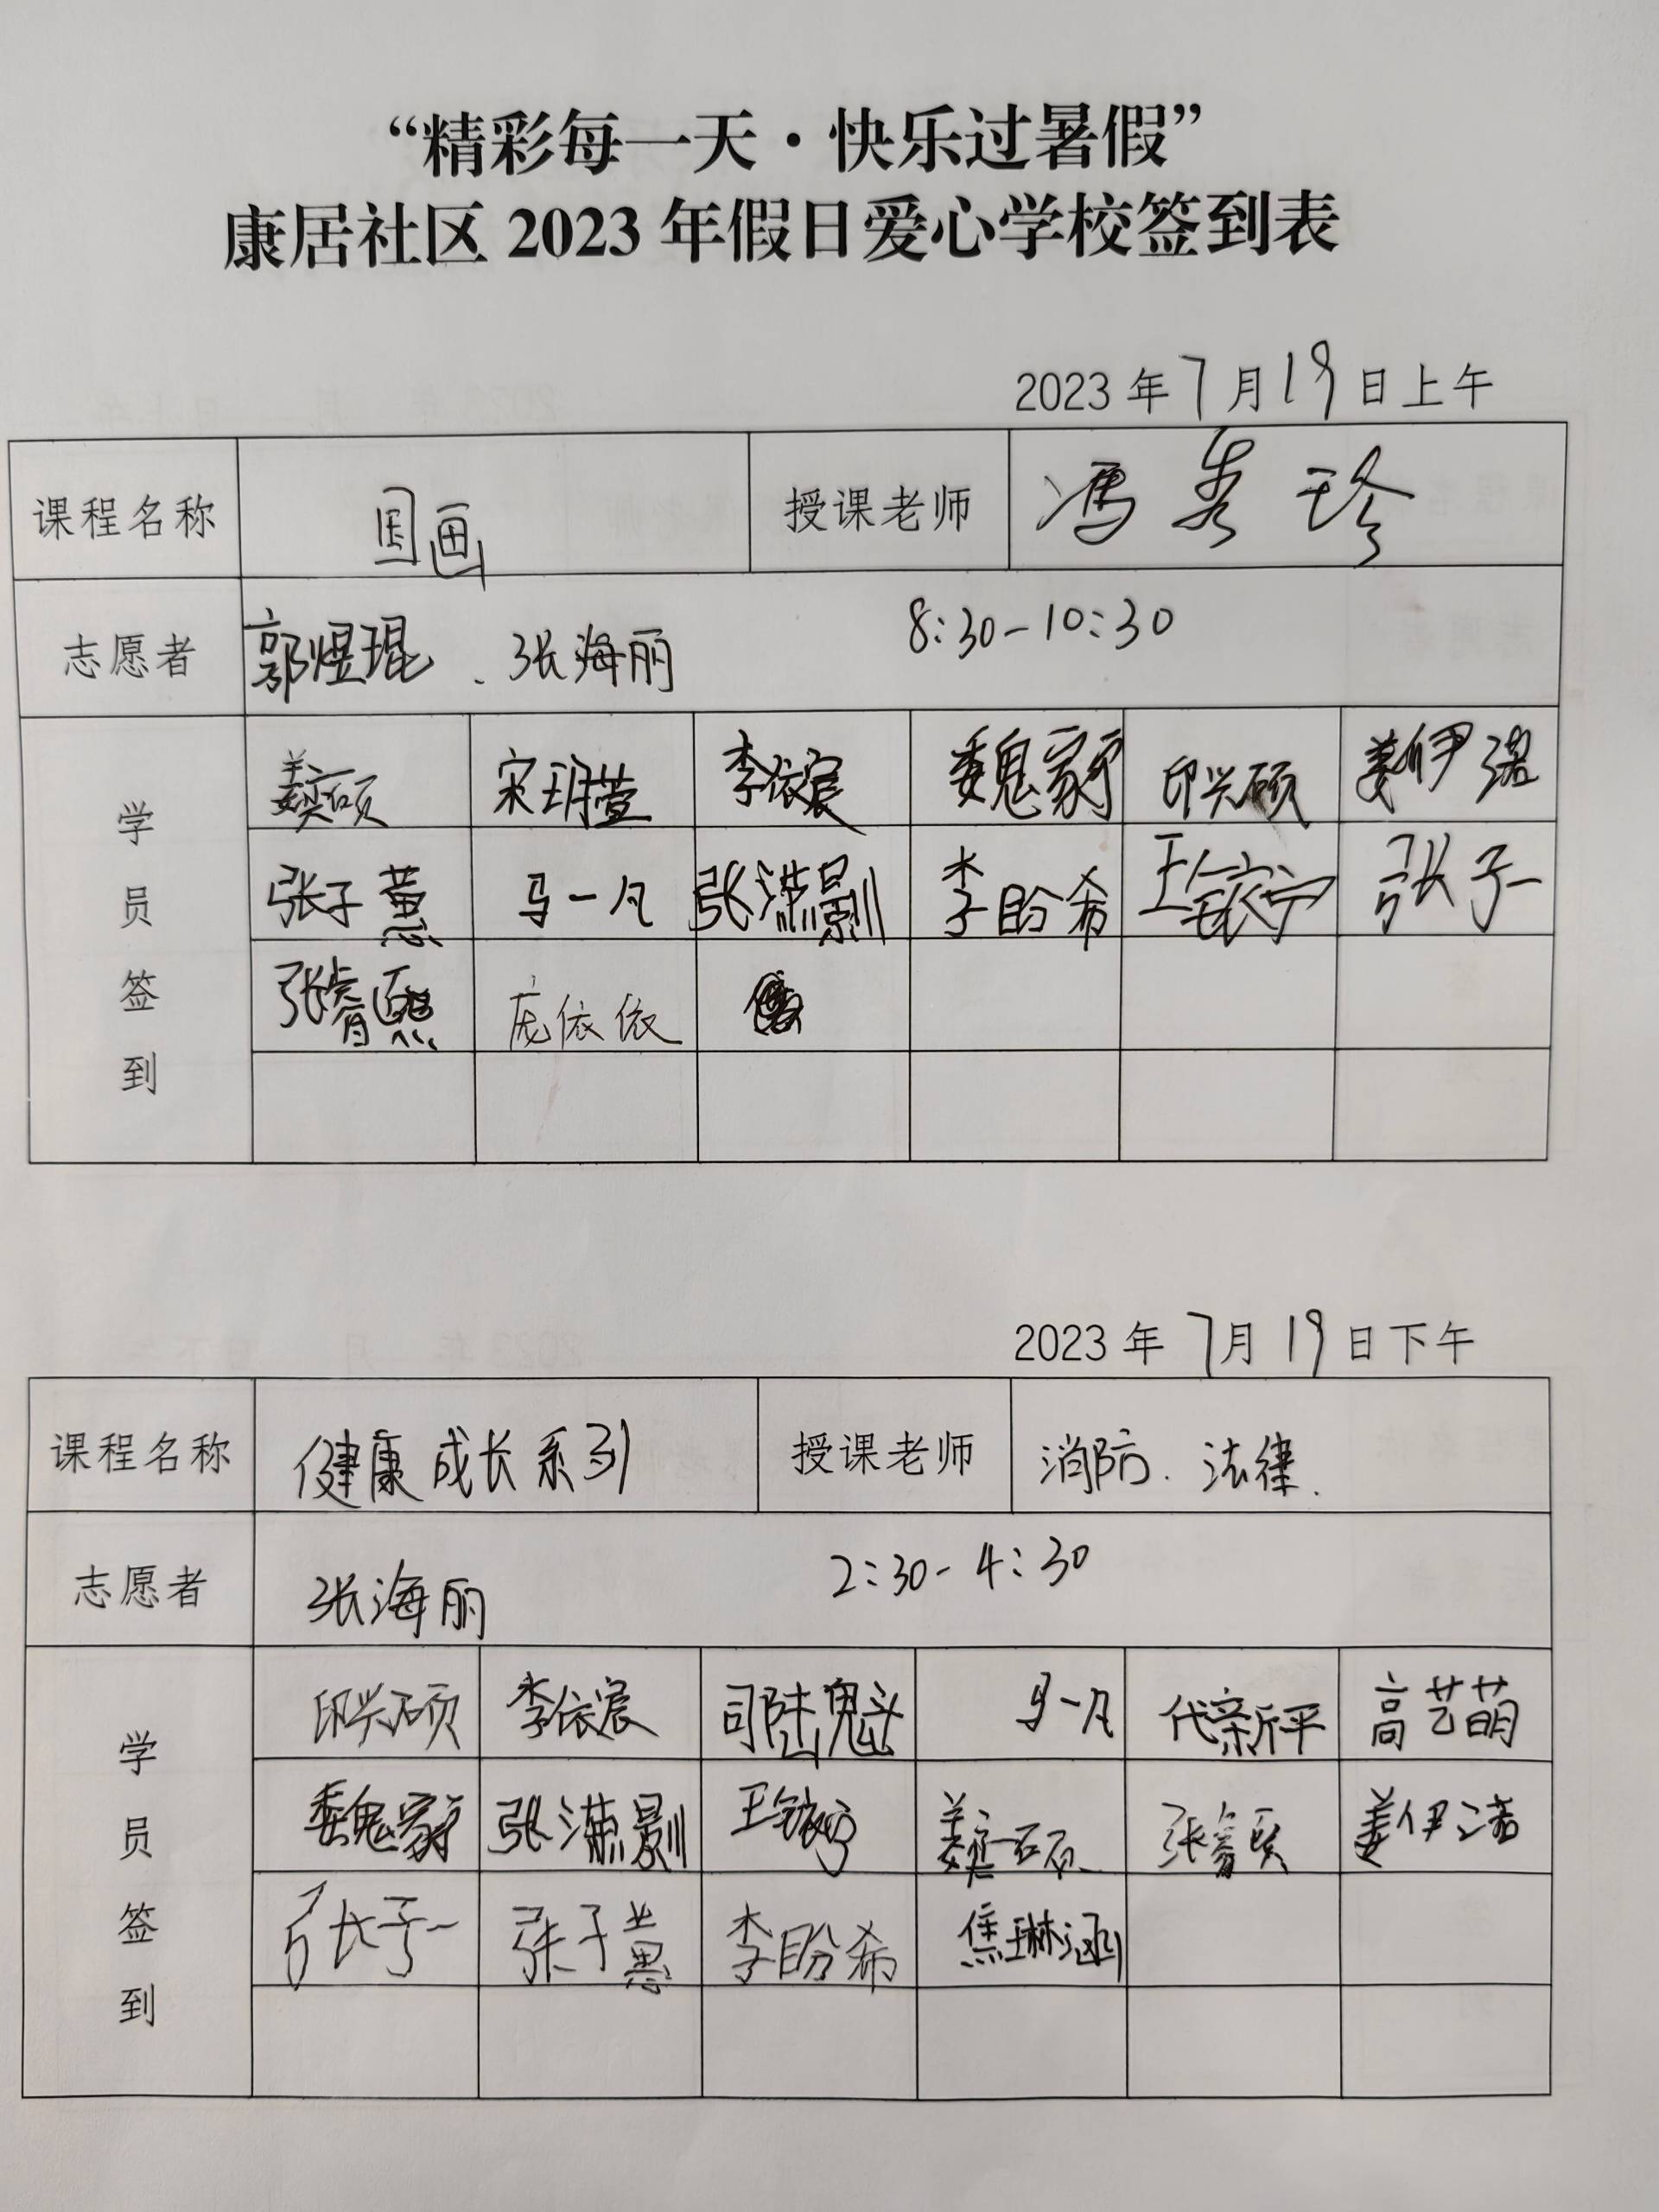 “精彩每一天·快乐过暑假”
康居社区 2023 年假日爱心学校签到表
2023 年 7 月 19 日上午
课程名称 国画 授课老师 冯秀珍
志愿者 郭煜琨、张海丽 8:30-10:30
学员签到
姜奕硕 宋玥萱 李依宸 魏家 印兴硕 姜伊诺
张子蕙 马一凡 张潆 李盼希 王 张子一
张睿熙 庞依依
2023 年 7 月 19 日下午
课程名称 健康成长系列 授课老师 消防. 法律.
志愿者 张海丽 2:30-4:30
学员签到
印兴硕 李依宸 司陆魁 马一凡 代新平 高艺萌
魏家 张潆 王 姜奕硕 张 姜伊诺
张子一 张子蕙 李盼希 焦琳涵